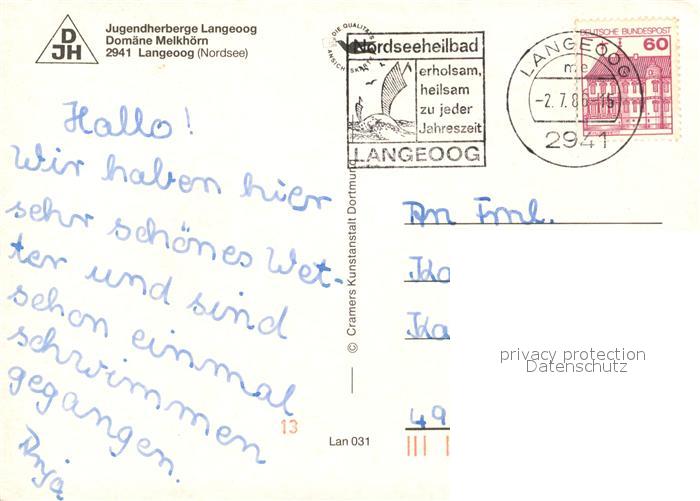 DJH
Jugendherberge Langeoog
Domäne Melkhörn
2941 Langeoog (Nordsee)
DIE QUALITÄTS
ANSICHTSKARTE
Nordseeheilbad
erholsam,
heilsam
zu jeder
Jahreszeit
LANGEOOG
LANGEOOG
me
-2.7.86-15
2941
DEUTSCHE BUNDESPOST
60
Hallo!
Wir haben hier
sehr schönes Wet-
ter und sind
schon einmal
schwimmen
gegangen.
Anja
© Cramers Kunstanstalt Dortmund
An Fml.
Ko
Ka
49
privacy protection
Datenschutz
13
Lan 031